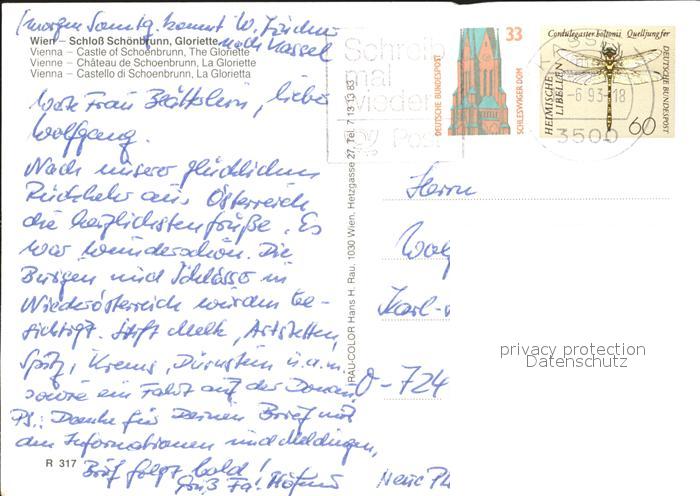 (morgen Sonntg. kommt W.
nach Kassel
Wien – Schloß Schönbrunn, Gloriette
Vienna – Castle of Schoenbrunn, The Gloriette
Vienne – Château de Schoenbrunn, La Gloriette
Vienna – Castello di Schoenbrunn, La Glorietta
Frau lieber
Wolfgang.
Nach unserer glücklichen
Rückkehr aus Österreich
die herzlichsten Grüße. Es
war wunderschön. Die
Burgen und Schlösser in
Niederösterreich wurden be-
sichtigt. Stift Melk, Artstetten,
Spitz, Krems, Dürnstein u.a.m
sowie ein Fahrt auf der Donau
PS.: Danke für Deinen Brief mit
den Informationen und Meldungen,
Brief folgt bald!
Gruß Fa.
R 317
TRAU-COLOR Hans H. Rau, 1030 Wien, Hetzgasse 27, Tel. 713 13 83
Schreib
mal
wieder
Post
33
DEUTSCHE BUNDESPOST
SCHLESWIGER DOM
Cordulegaster boltonii Quelljungfer
HEIMISCHE LIBELLEN
DEUTSCHE BUNDESPOST
60
KASSEL
-6.93-18
3500
Herrn
Wolf
Karl-
O-724
privacy protection
Datenschutz